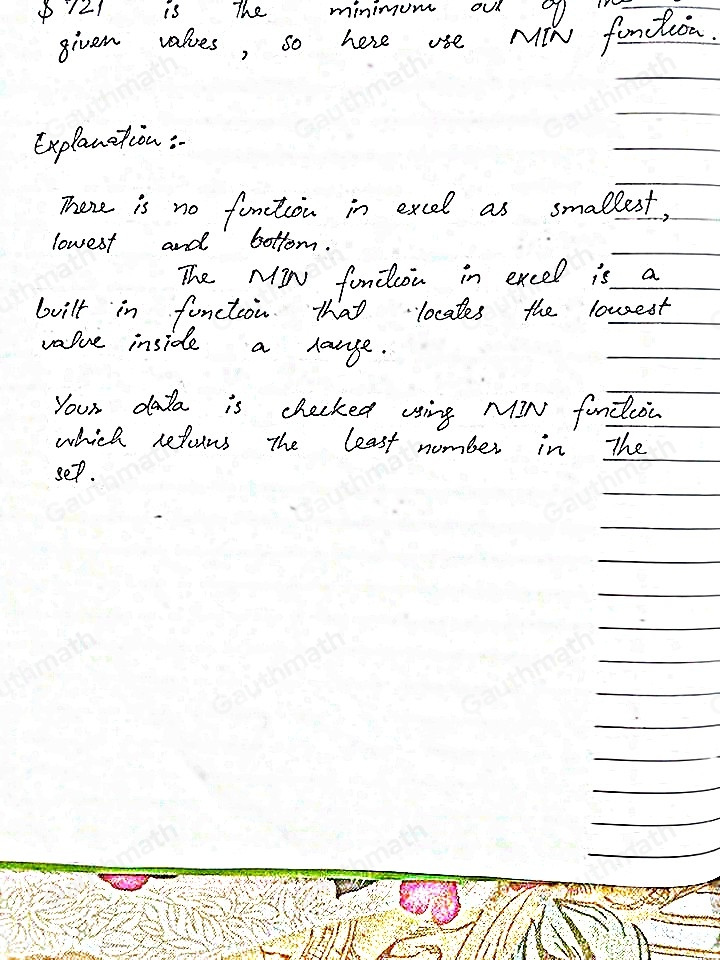 $ 721 is the minimum out of the
given values, so here use MIN function.
Explanation :-
There is no function in excel as smallest,
lowest and bottom.
The MIN function in excel is a
built in function that locates the lowest
value inside a range.
Your data is checked using MIN function
which returns the least number in the
set.